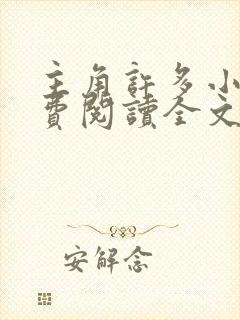 主角許多小
費閱讀全文
安解念